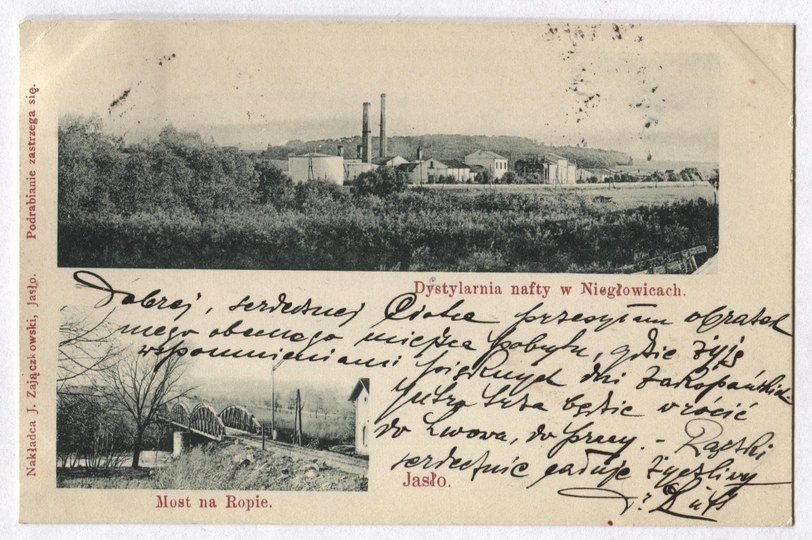 Nakładca J. Zajączkowski, Jasło. Podrabianie zastrzega się.
Dystylarnia nafty w Niegłowicach.
Dobrej, serdecznej Ciotce przesyłam obrazek
mego obecnego miejsca pobytu, gdzie żyję
wspomnieniami pięknych dni zakopiańskich
jutro trza będzie wrócić
do Lwowa, do pracy. - Rączki
serdecznie całuje życzliwy
Jasło.
Most na Ropie.